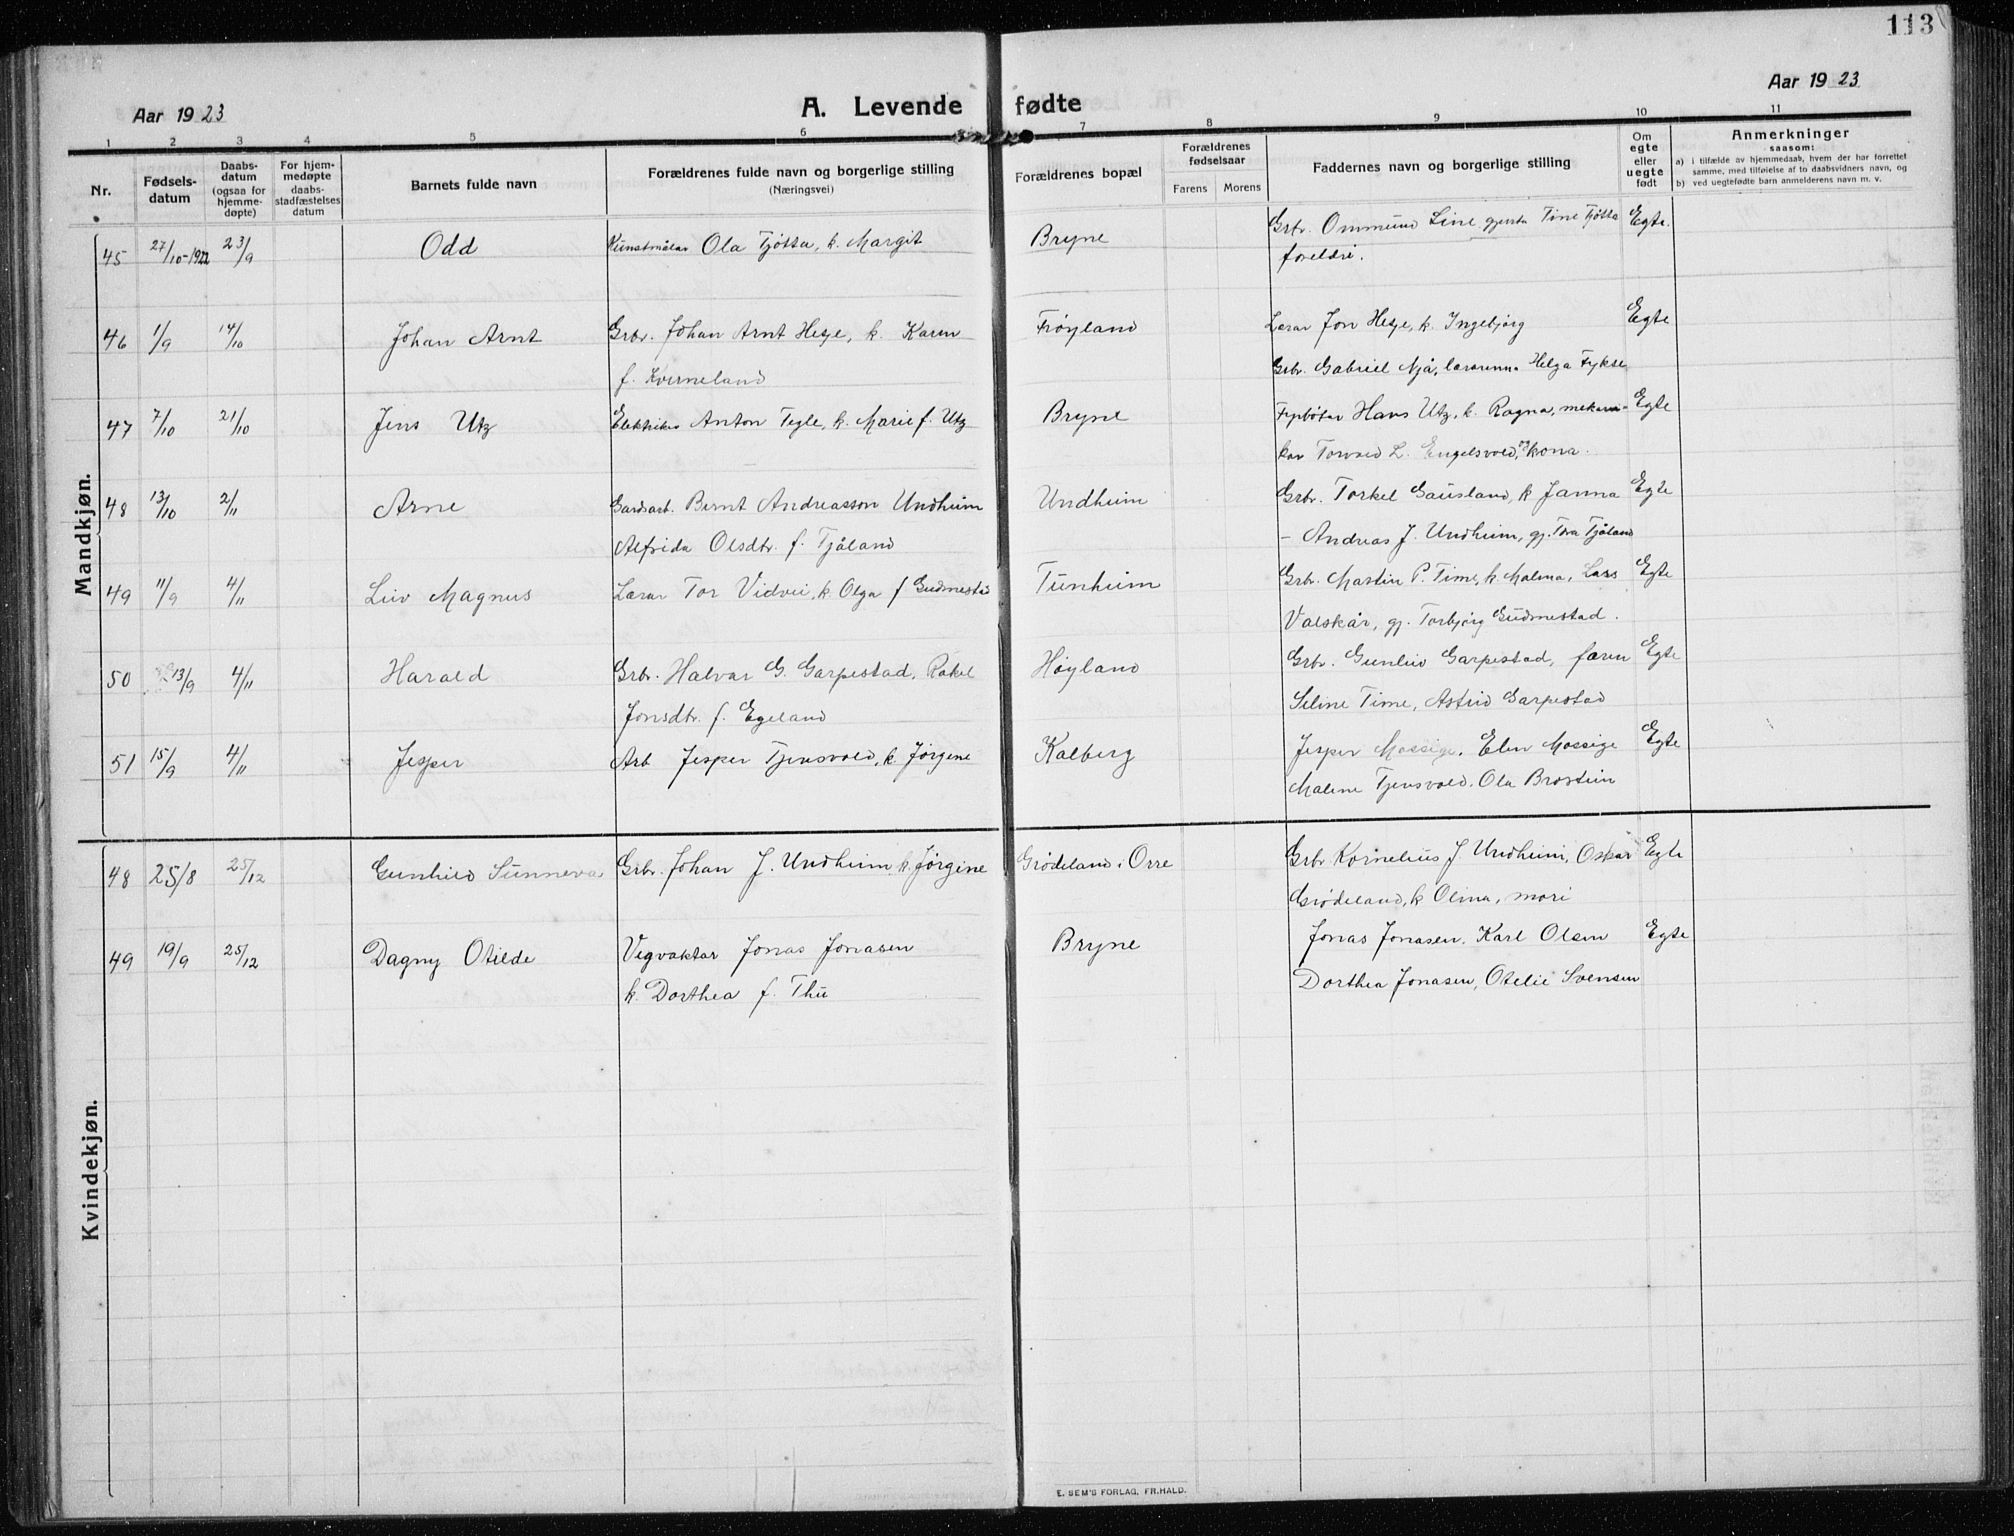 113
Aar 1923
A. Levende fødte
Aar 1923
1 2 3 4 5 6 7 8 9 10 11
Nr.
Fødsels-
datum
Daabs-
datum
(ogsaa for
hjemme-
døpte)
For hjem-
medøpte
daabs-
stadfæstelses
datum
Barnets fulde navn
Forældrenes fulde navn og borgerlige stilling
(Næringsvei)
Forældrenes bopæl
Forældrenes
fødselsaar
Farens Morens
Faddernes navn og borgerlige stilling
Om
egte
eller
uegte
født
Anmerkninger
saasom:
a) i tilfælde av hjemmedaab, hvem der har forrettet
samme, med tilføielse af to daabsvidners navn, og
b) ved uegtefødte barn anmelderens navn m. v.
Mandkjøn.
45 27/10-1922 23/9 Odd Kunstmålar Ola Tjøtta, k. Margit Bryne Grbr. Ommund Line gjenta Tine Tjøtta Egte.
foreldri.
46 1/9 14/10 Johan Arnt Grbr. Johan Arnt Hetje, k. Karen Frøyland Lærar Jon Hetje, k. Ingebjørg Egte
f. Kverneland Grbr. Gabriel Njå, lærarinna Helga Fykse
47 7/10 21/10 Jens Utz Elektrikar Anton Tegle, k. Marie f. Utz Bryne Hans Utz, k. Ragna, mekani- Egte
kar Torvald L. Engelsvold, og kona.
48 13/10 2/11 Arne Gardsarb. Bernt Andreasson Undheim Undheim Grbr. Torkel Gausland, k Janna Egte
Alfrida Olsdtr. f. Tjåland – Andreas J. Undheim, gj. Tora Tjåland
49 11/9 4/11 Leiv Magnus Lærar Tor Vidvei, k. Olga f Gudmestad Tunheim Grbr. Martin P. Time, k. Malena, Lars Egte
Valskår, gj. Torbjørg Gudmestad.
50 13/9 4/11 Harald Grbr. Halvar G. Garpestad, Rakel Høyland Grbr. Gunleiv Garpestad, faren Egte
Jonsdtr. f. Egeland Seline Time, Astrid Garpestad
51 15/9 4/11 Jesper Arb Jesper Tjensvold, k. Jørgine Kalberg Jesper Mossige. Elen Mossige Egte
Malene Tjensvold. Ola Brostein
Kvindekjøn.
48 25/8 25/12 Gunhild Sunneva Grbr. Johan J. Undheim, k. Jørgine Grødeland i Orre Grbr. Kornelius J Undheim, Oskar Egte
Grødeland, k Olina, mori
49 19/9 25/12 Dagny Otilde Vegvaktar Jonas Jonasen Bryne Jonas Jonasen. Karl Olsen Egte
k. Dorthea f. Thu Dorthea Jonasen, Otelie Svensen
E. SEM'S FORLAG, FR.HALD.